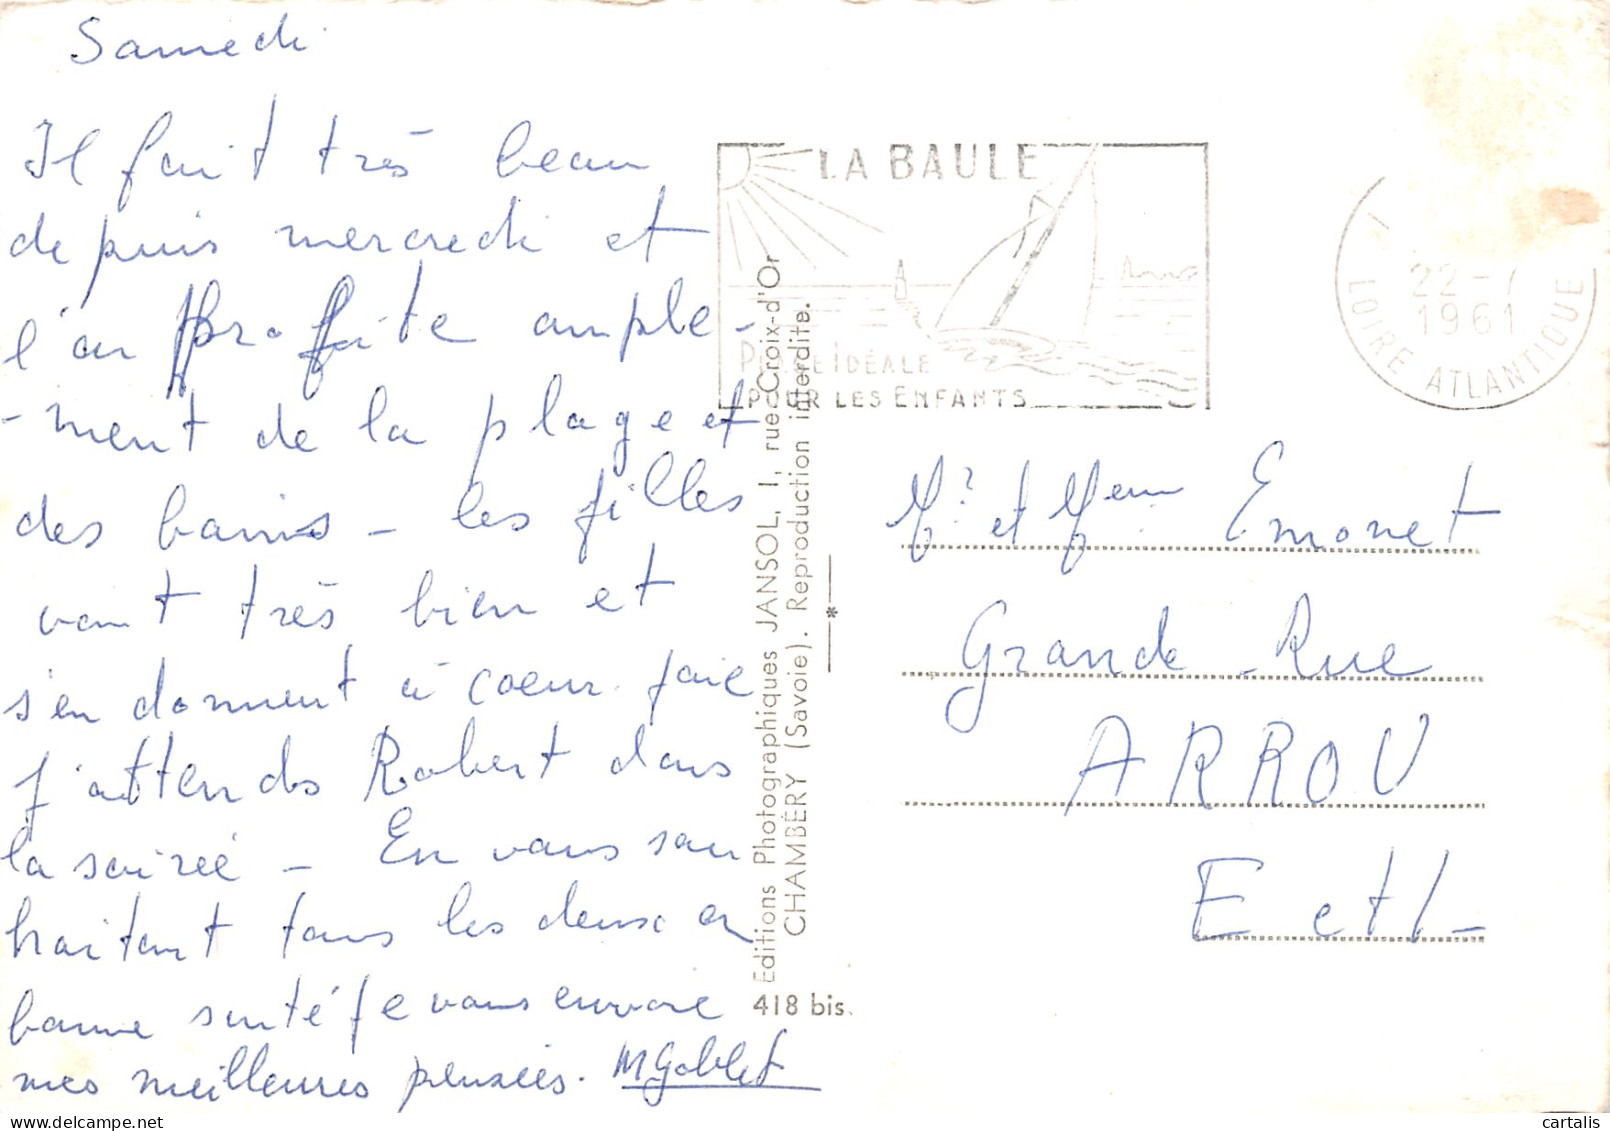 Samedi
Il fait très beau
depuis mercredi et
l'on profite ample-
-ment de la plage et
des bains - les filles
vont très bien et
s'en donnent à coeur joie
J'attends Robert dans
la soirée - En vous sou
haitant tous les deux en
bonne santé je vous envoie
mes meilleures pensées. MGoblet
LA BAULE
PLAGE IDÉALE
POUR LES ENFANTS
22-7
1961
LOIRE ATLANTIQUE
Editions Photographiques JANSOL, 1, rue Croix-d'Or
CHAMBÉRY (Savoie). Reproduction interdite.
*
418 bis.
Mr et Mem Emonet
Grande Rue
ARROU
E et L
cartalis